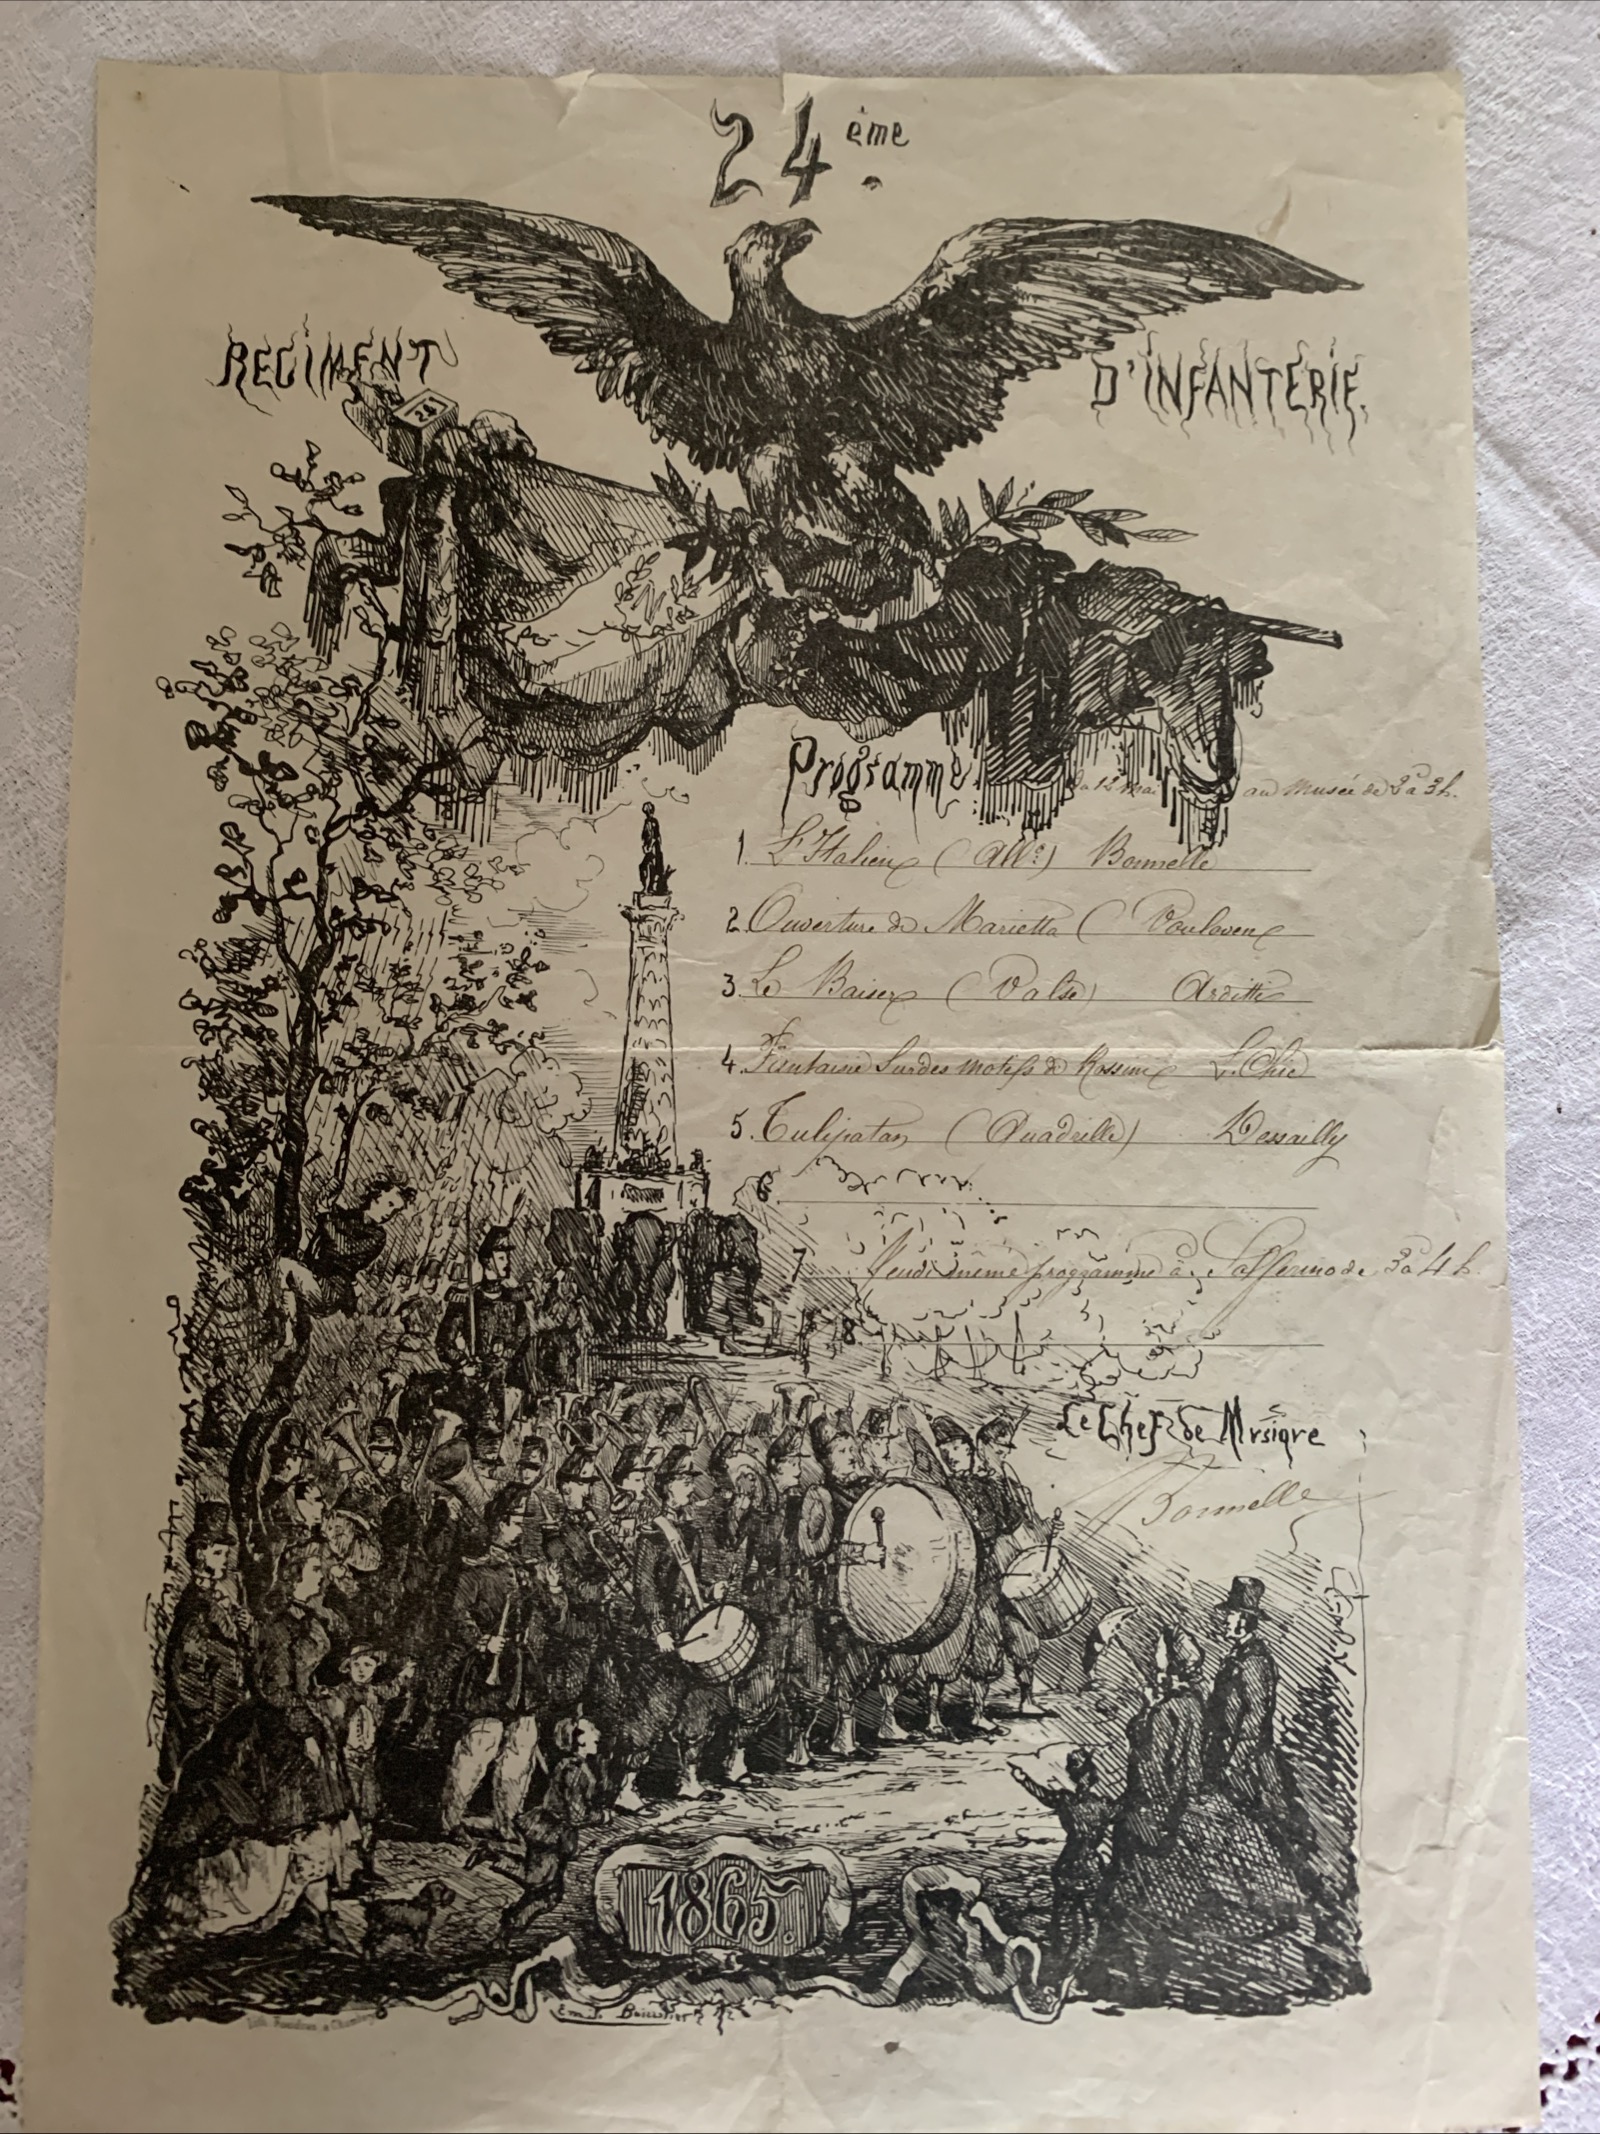 24ème
REGIMENT D'INFANTERIE.
24
Programme du 12 Mai au Musée de 2 à 3h.
1. L'Italien (All°) Bonnelle
2. Ouverture de Marietta (
3. Le Baiser (Valse) Arditi
4. Fantaisie Sur des motifs de Rossini
5. Tulipatan (Quadrille) Dessailly
6
7 Jeudi même programme à Solférino de 3 à 4 h.
8
Le Chef de Mvsiqve
Bonnelle
1865.
Lith.